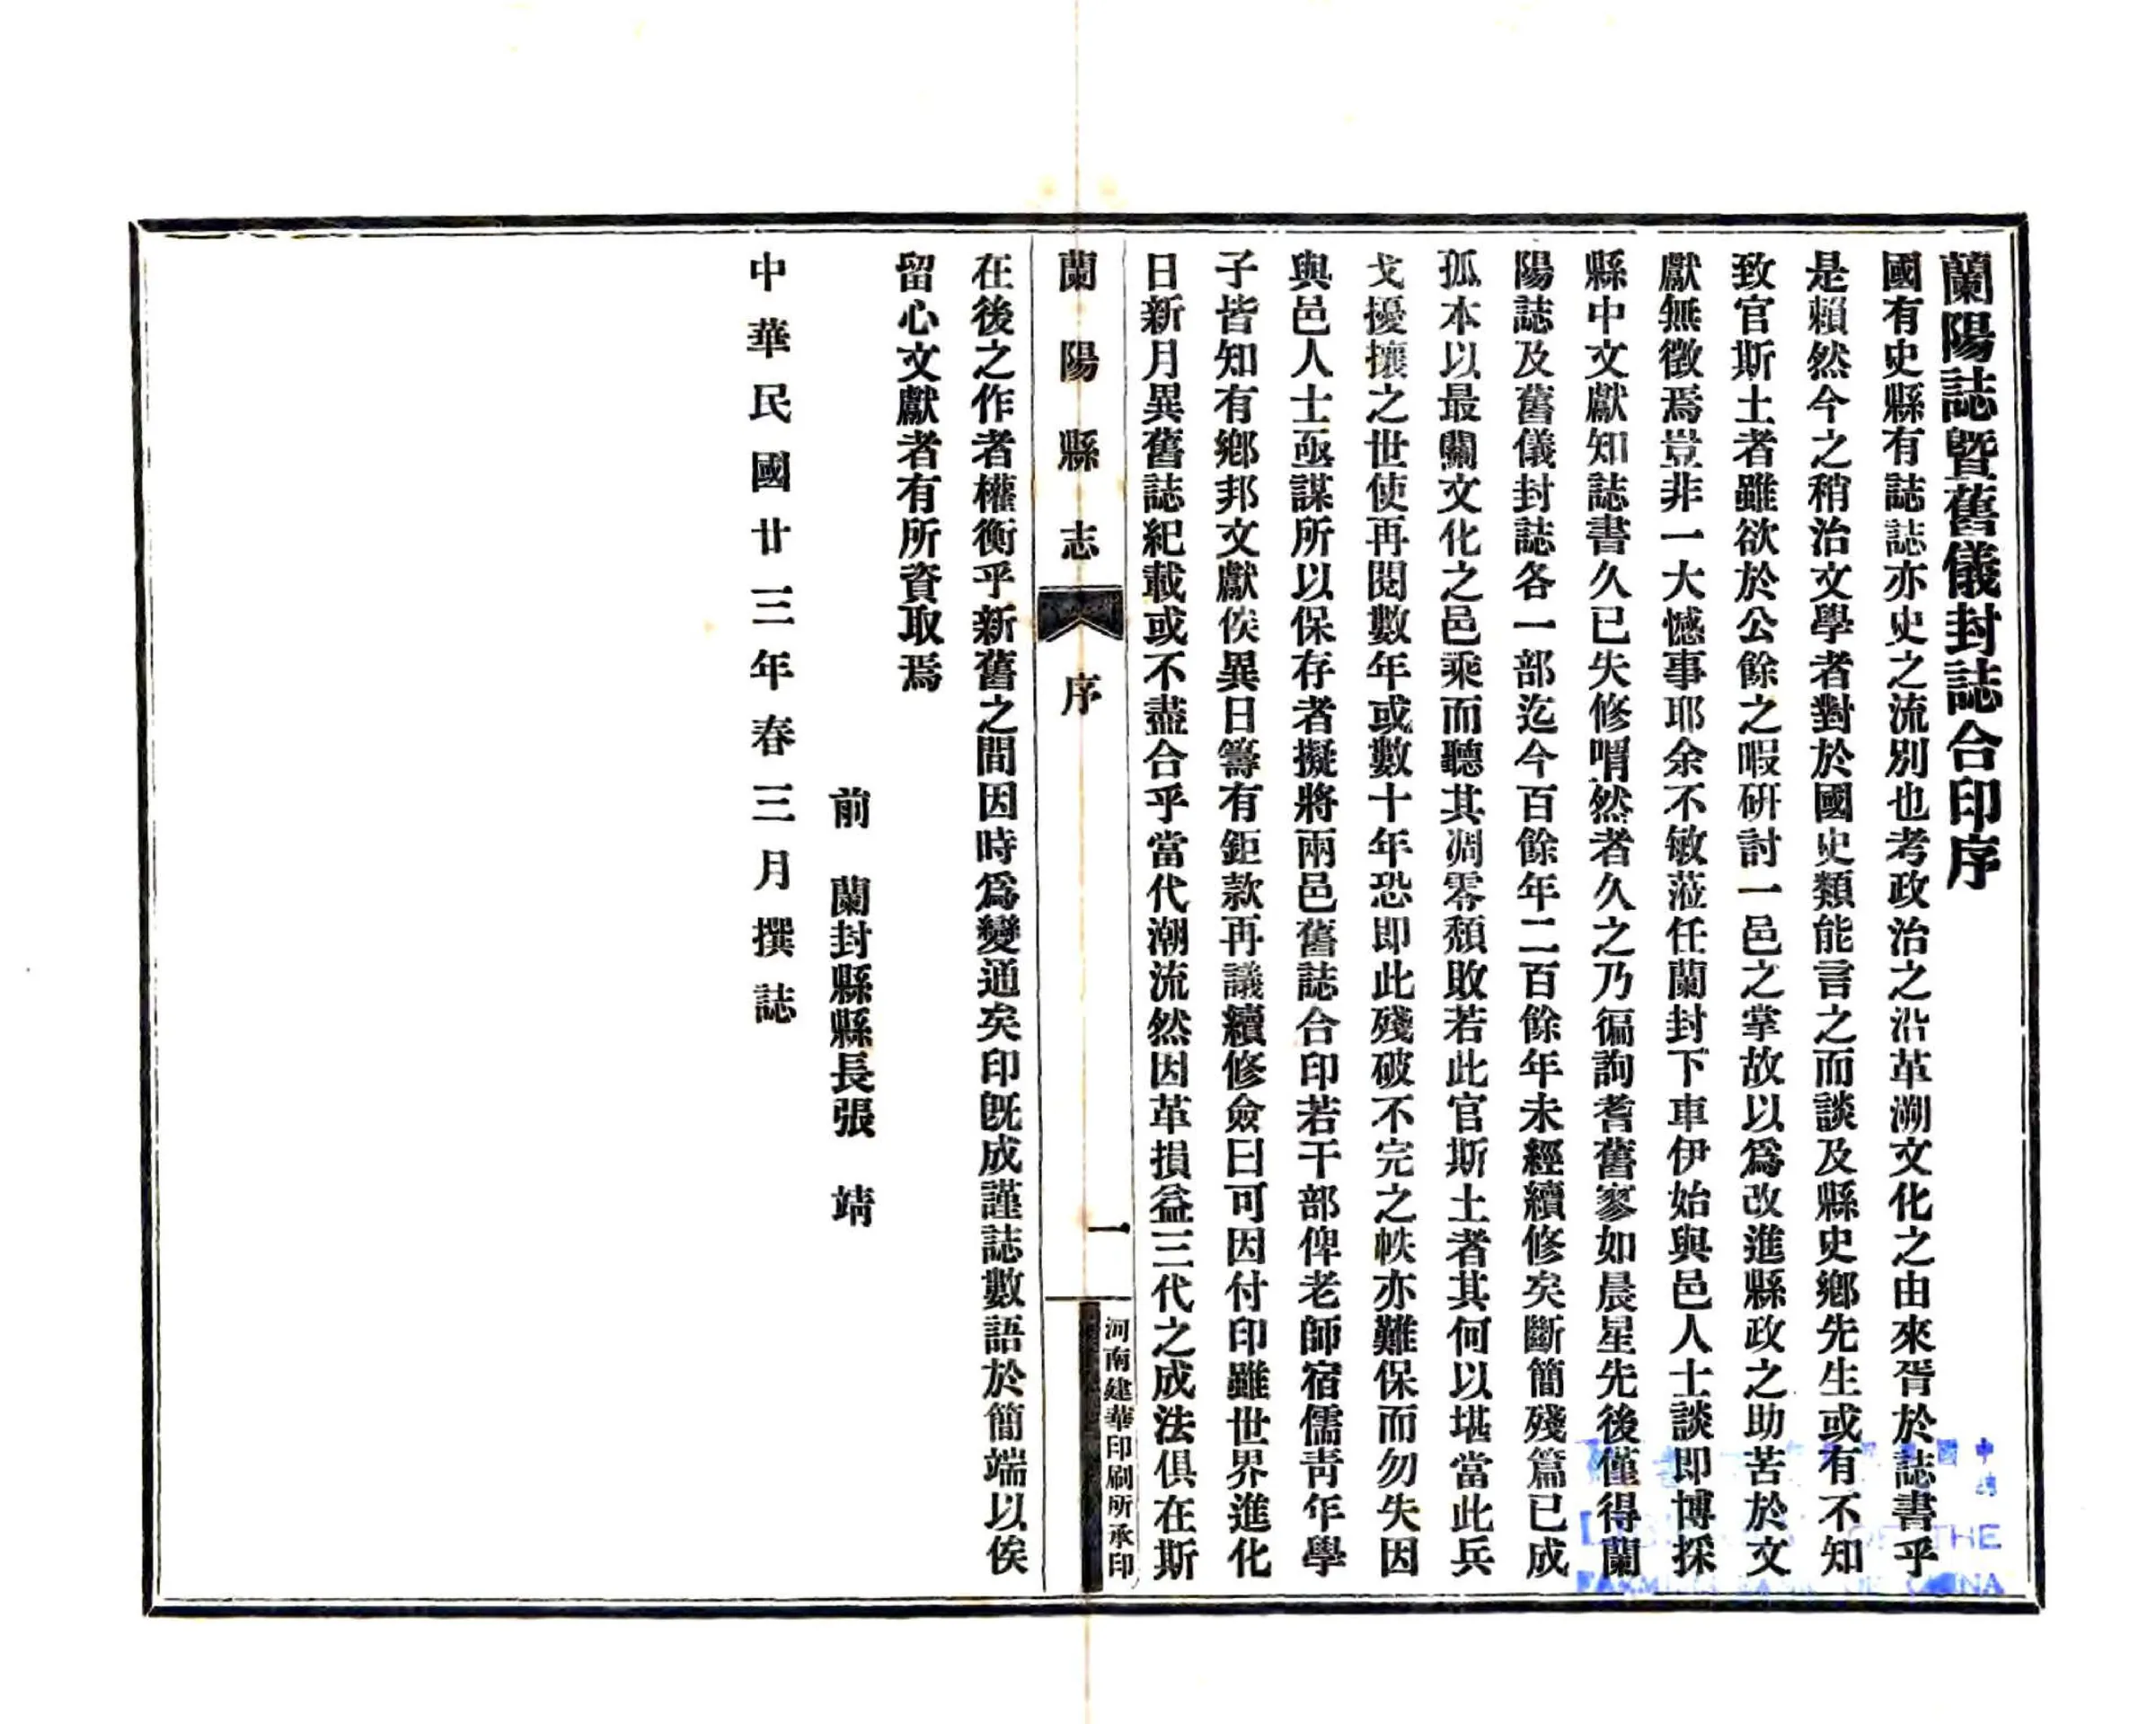 蘭陽誌暨舊儀封誌合印序
國有史縣有誌誌亦史之流別也考政治之沿革溯文化之由來胥於誌書乎
是賴然今之稍治文學者對於國史類能言之而談及縣史鄉先生或有不知
致官斯土者雖欲於公餘之暇研討一邑之掌故以爲改進縣政之助苦於文
獻無徵焉豈非一大憾事耶余不敏蒞任蘭封下車伊始與邑人士談即博採
縣中文獻知誌書久已失修喟然者久之乃徧詢耆舊寥如晨星先後僅得蘭
陽誌及舊儀封誌各一部迄今百餘年二百餘年未經續修矣斷簡殘篇已成
孤本以最關文化之邑乘而聽其凋零頹敗若此官斯土者其何以堪當此兵
戈擾攘之世使再閱數年或數十年恐即此殘破不完之帙亦難保而勿失因
與邑人士亟謀所以保存者擬將兩邑舊誌合印若干部俾老師宿儒青年學
子皆知有鄉邦文獻俟異日籌有鉅款再議續修僉曰可因付印雖世界進化
日新月異舊誌紀載或不盡合乎當代潮流然因革損益三代之成法俱在斯
蘭陽縣志
序
一
河南建華印刷所承印
在後之作者權衡乎新舊之間因時爲變通矣印旣成謹誌數語於簡端以俟
留心文獻者有所資取焉
前 蘭封縣縣長張 靖
中華民國廿三年春三月撰誌
OF THE